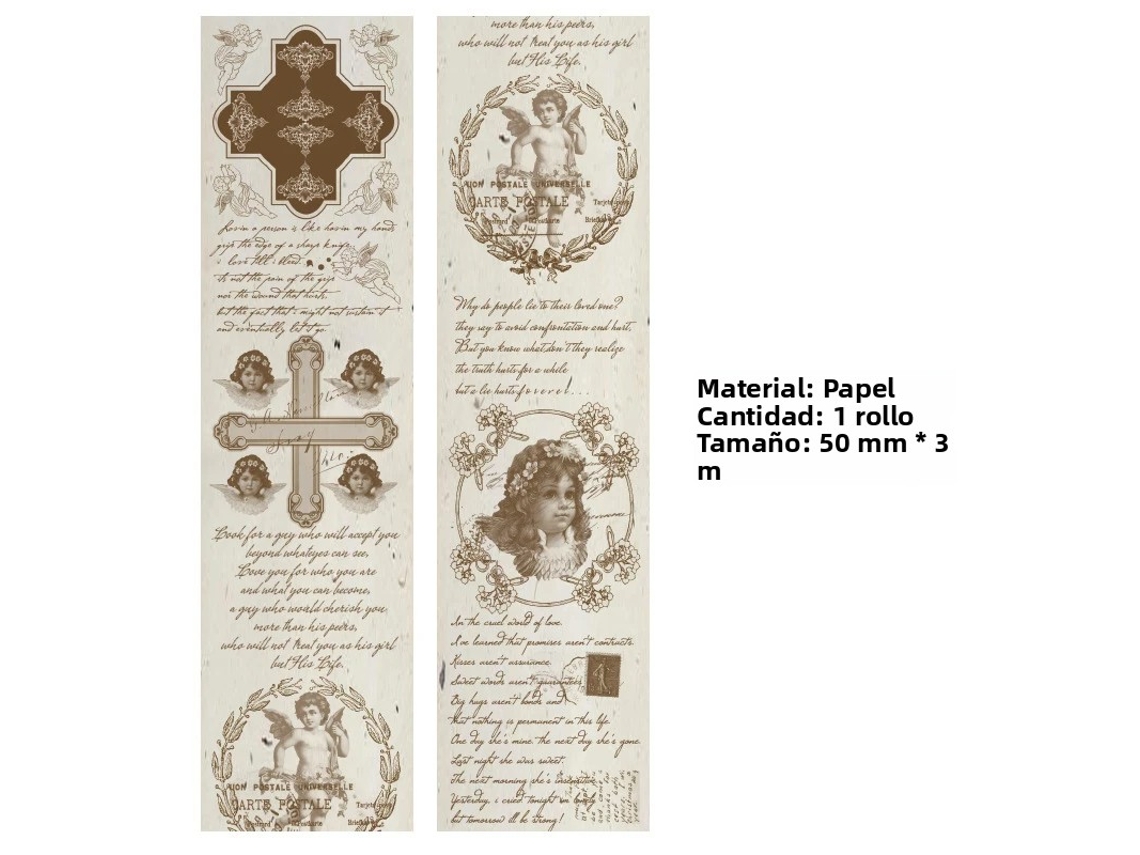 Lovin a person is like havin my hands
grip the edge of a sharp knife.
i love till i bleed.
its not the pain of the grip
nor the wound that hurts.
but the fact that i might not sustain it
and eventually let it go.
Look for a guy who will accept you
beyond whateyes can see,
Love you for who you are
and what you can become,
a guy who would cherish you
more than his peers,
who will not treat you as his girl
but His Life.
UION POSTALE UNIVERSELLE
CARTE POSTALE
more than his peers,
who will not treat you as his girl
but His Life.
UION POSTALE UNIVERSELLE
CARTE POSTALE
Why do people lie to their loved one?
they say to avoid confrontation and hurt,
But you know what,don't they realize
the truth hurts for a while
but a lie hurts forevel!...
In the cruel world of love.
I've learned that promises aren't contracts.
Kisses aren't assurance.
Sweet words aren't guarantees
Big hugs aren't bonds and
that nothing is permanent in this life.
One day she's mine. the next day she's gone.
Last night she was sweet.
The next morning she's insensitive.
Yesterday, i cried tonight im lonely
but tomorrow ill be strong!
Material: Papel
Cantidad: 1 rollo
Tamaño: 50 mm * 3
m